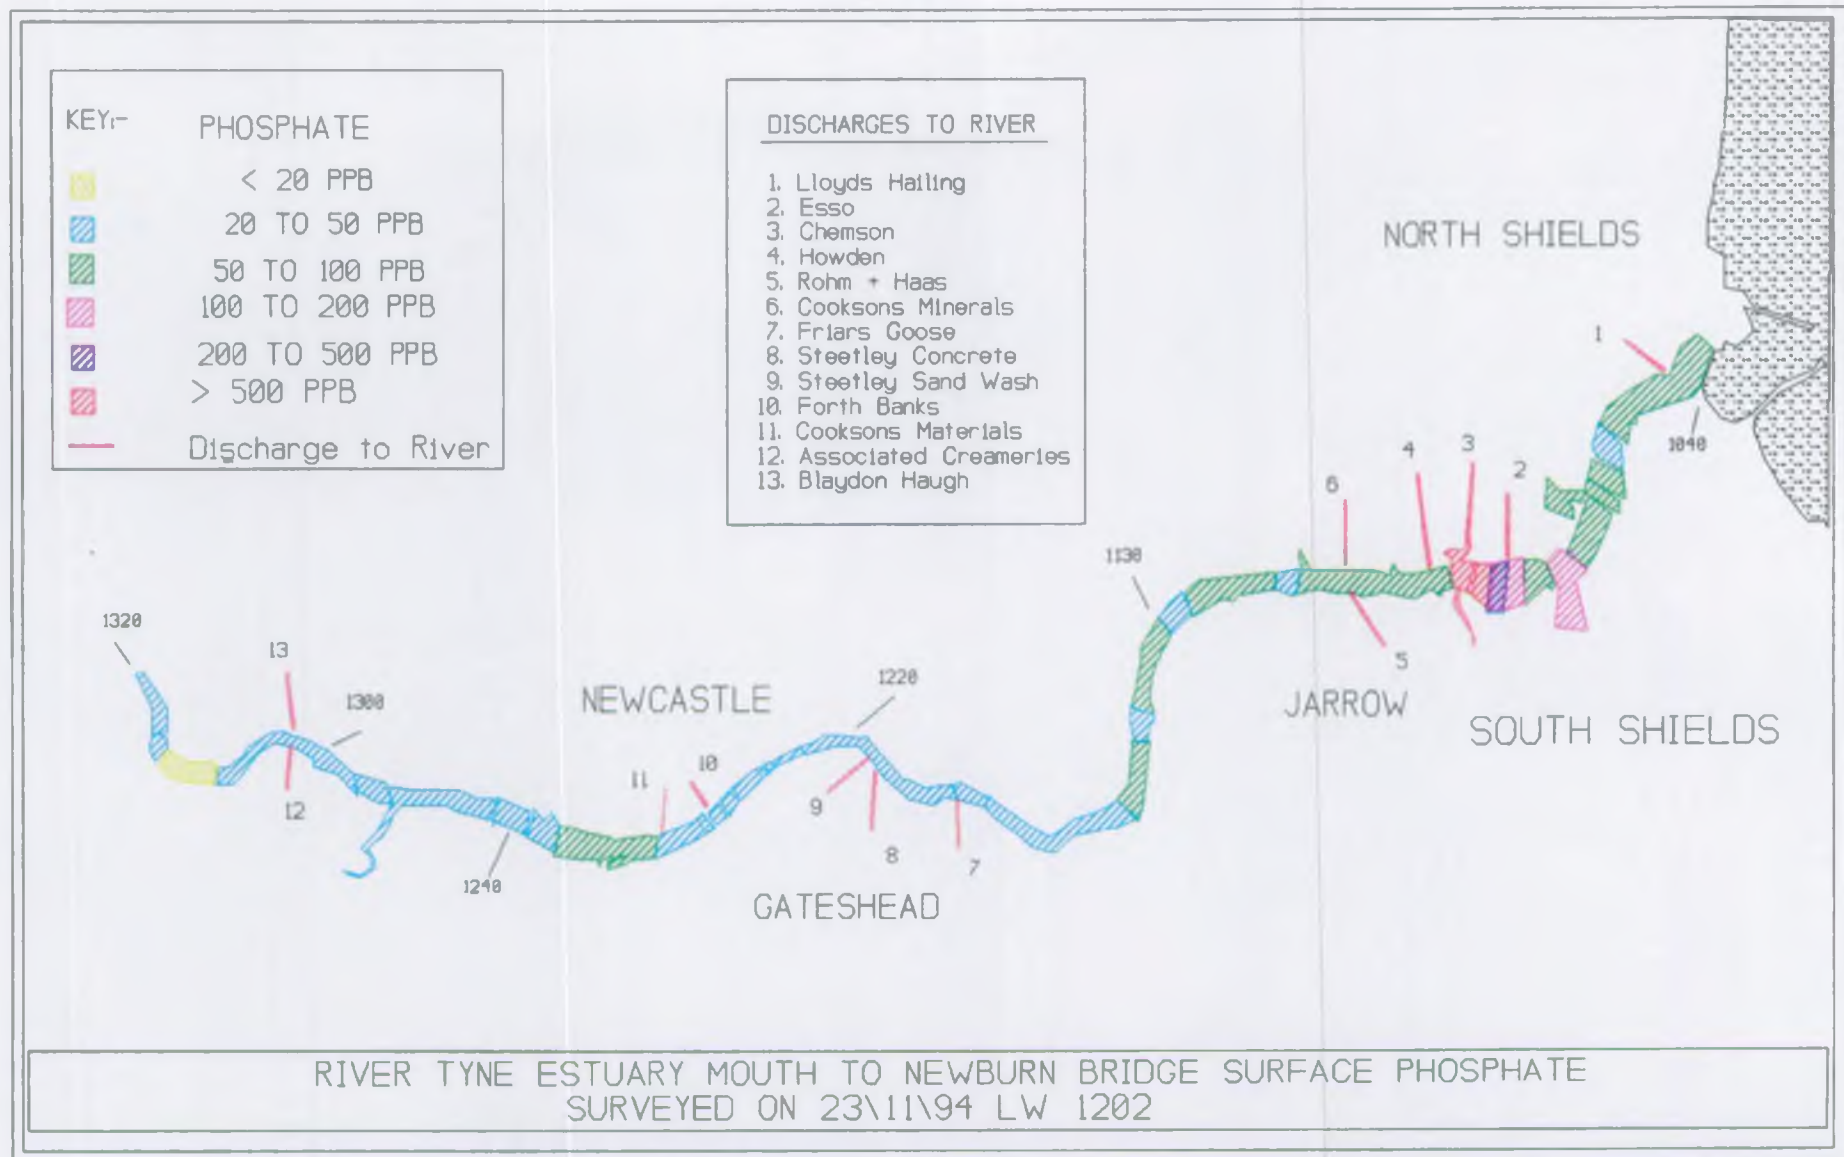 KEY:-
PHOSPHATE
< 20 PPB
20 TO 50 PPB
50 TO 100 PPB
100 TO 200 PPB
200 TO 500 PPB
> 500 PPB
Discharge to River
DISCHARGES TO RIVER
1. Lloyds Hailing
2. Esso
3. Chemson
4. Howden
5. Rohm + Haas
6. Cooksons Minerals
7. Friars Goose
8. Steetley Concrete
9. Steetley Sand Wash
10. Forth Banks
11. Cooksons Materials
12. Associated Creameries
13. Blaydon Haugh
NORTH SHIELDS
1
1040
4
3
2
6
1130
5
JARROW
SOUTH SHIELDS
1320
13
1300
NEWCASTLE
1220
12
11
10
9
8
7
1240
GATESHEAD
RIVER TYNE ESTUARY MOUTH TO NEWBURN BRIDGE SURFACE PHOSPHATE
SURVEYED ON 23\11\94 LW 1202